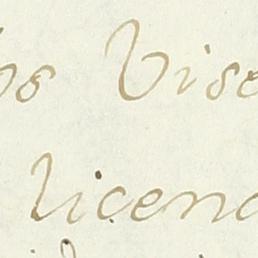 os Vise
licena